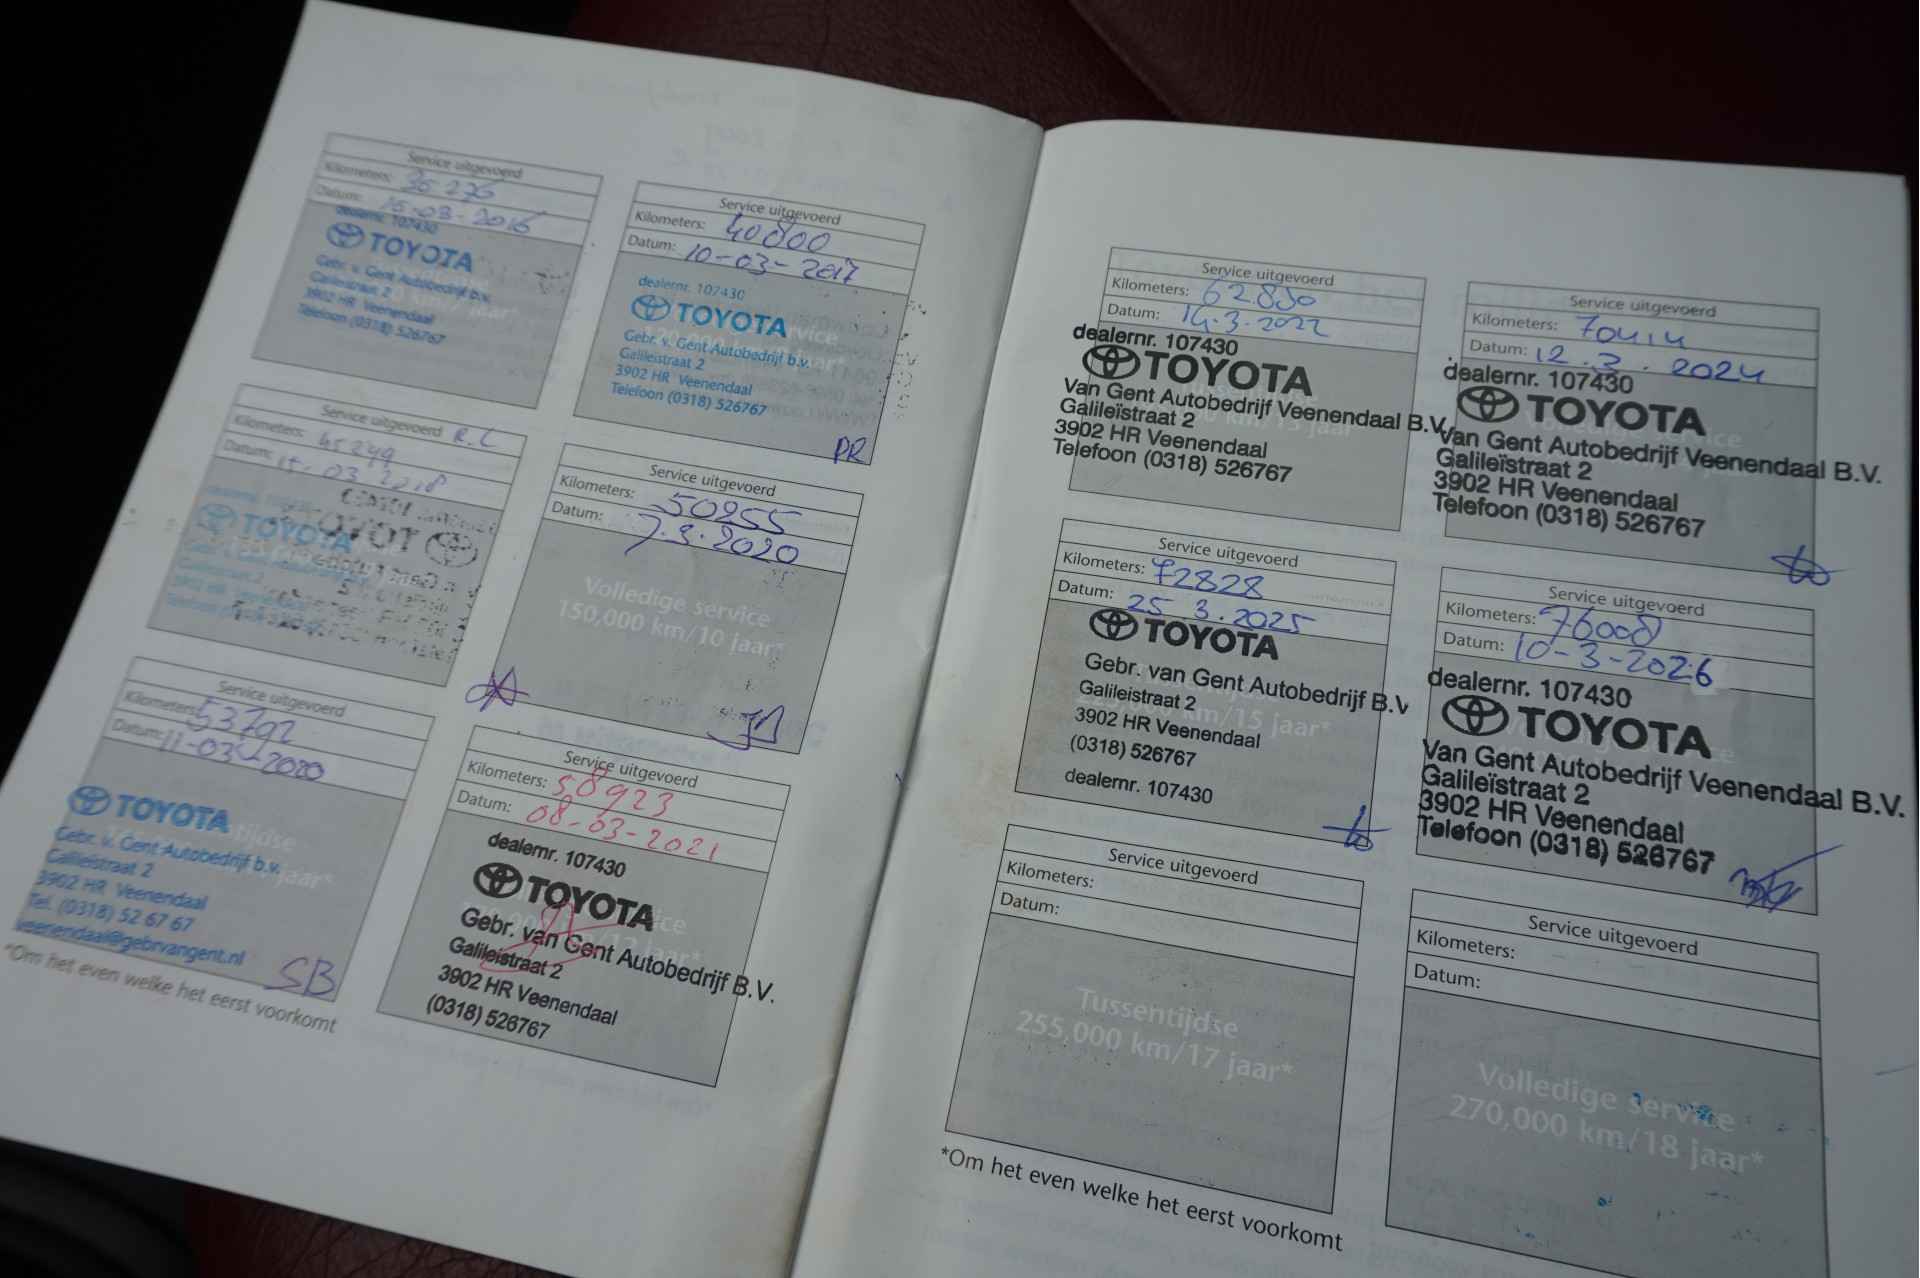 Service uitgevoerd
Kilometers: 36276
Datum: 15-03-2016
dealernr. 107430
TOYOTA
Gebr. v. Gent Autobedrijf b.v.
Galileistraat 2
3902 HR Veenendaal
Telefoon (0318) 526767
Service uitgevoerd
Kilometers: 40800
Datum: 10-03-2017
dealernr. 107430
TOYOTA
Gebr. v. Gent Autobedrijf b.v.
Galileistraat 2
3902 HR Veenendaal
Telefoon (0318) 526767
PR
Service uitgevoerd R.C
Kilometers: 45249
Datum: 03 2018
TOYOTA
Service uitgevoerd
Kilometers: 50255
Datum: 7.3.2020
Volledige service
150,000 km/10 jaar*
Service uitgevoerd
Kilometers: 53792
Datum: 11-03-2020
TOYOTA
Gebr. v. Gent Autobedrijf b.v.
Galileistraat 2
3902 HR Veenendaal
Tel. (0318) 52 67 67
veenendaal@gebrvangent.nl
SB
Service uitgevoerd
Kilometers: 58923
Datum: 08-03-2021
dealernr. 107430
TOYOTA
Gebr. van Gent Autobedrijf B.V.
Galileistraat 2
3902 HR Veenendaal
(0318) 526767
*Om het even welke het eerst voorkomt
Service uitgevoerd
Kilometers: 62830
Datum: 14.3.2022
dealernr. 107430
TOYOTA
Van Gent Autobedrijf Veenendaal B.V.
Galileïstraat 2
3902 HR Veenendaal
Telefoon (0318) 526767
Service uitgevoerd
Kilometers: 70414
Datum: 12.3.2024
dealernr. 107430
TOYOTA
Van Gent Autobedrijf Veenendaal B.V.
Galileïstraat 2
3902 HR Veenendaal
Telefoon (0318) 526767
Service uitgevoerd
Kilometers: 72828
Datum: 25 3.2025
TOYOTA
Gebr. van Gent Autobedrijf B.V
Galileistraat 2
3902 HR Veenendaal
(0318) 526767
dealernr. 107430
Service uitgevoerd
Kilometers: 76008
Datum: 10-3-2026
dealernr. 107430
TOYOTA
Van Gent Autobedrijf Veenendaal B.V.
Galileïstraat 2
3902 HR Veenendaal
Telefoon (0318) 526767
Service uitgevoerd
Kilometers:
Datum:
Tussentijdse
255,000 km/17 jaar*
Service uitgevoerd
Kilometers:
Datum:
Volledige service
270,000 km/18 jaar*
*Om het even welke het eerst voorkomt